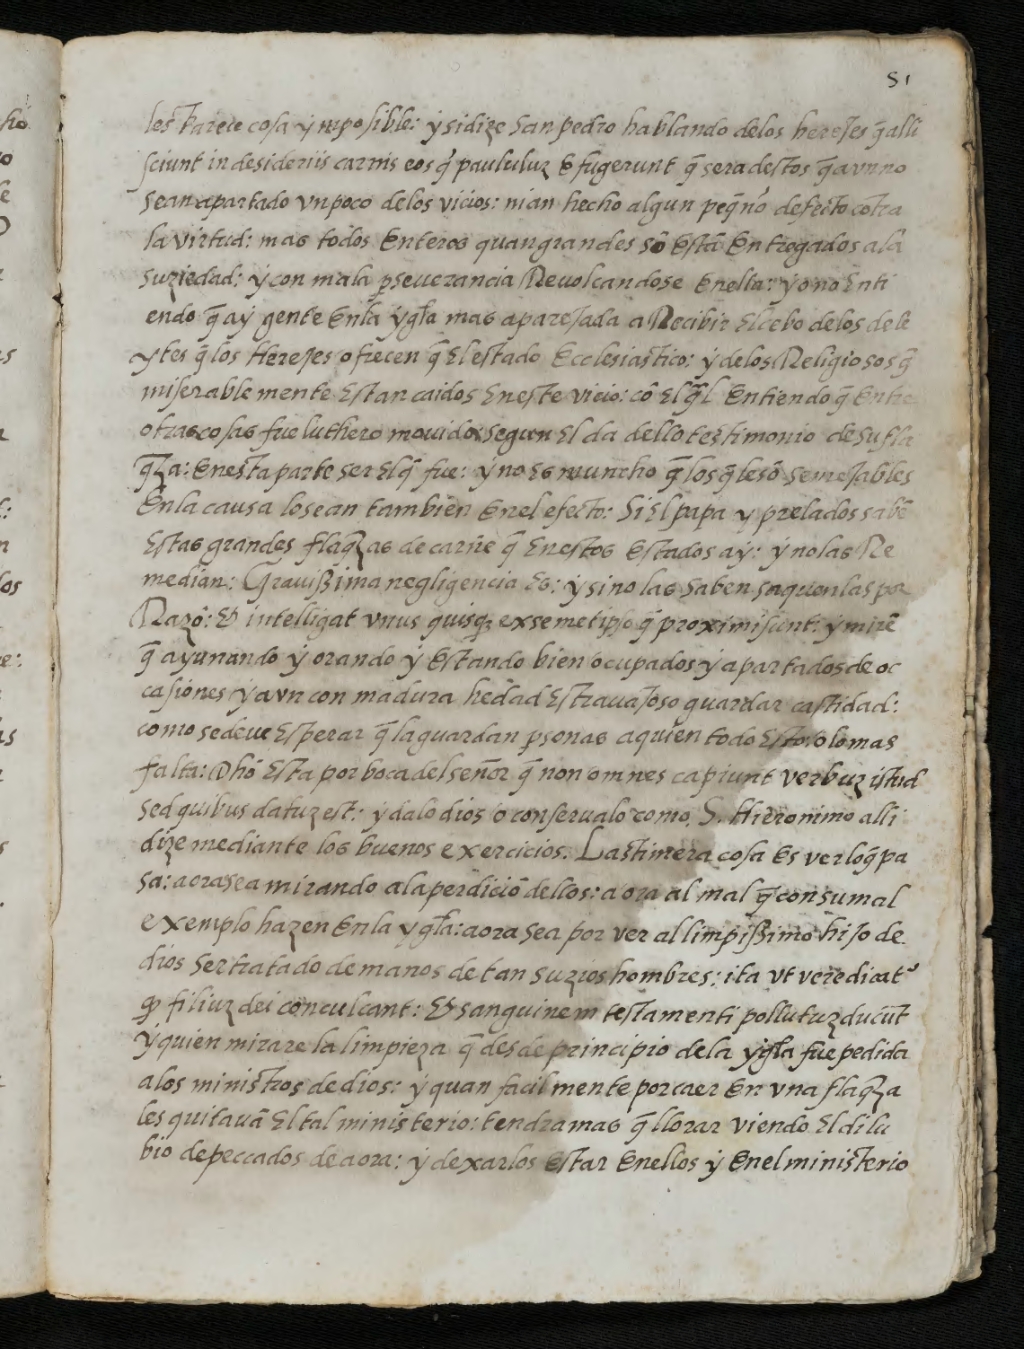 51
les Parece cosa ymposible: y si dize San pedro hablando delos herejes q̃ alli
sciunt in desideriis carnis eos q̃ paululuz effugerunt q̃ sera destos q̃ aun no
se an apartado vn poco de los vicios: ni an hecho algun peq̃no defecto cõtra
la virtud: mas todos enteros quan grandes sõ estã entregados a la
suziedad: y con mala pseuerancia Reuolcandose en ella: yo no enti
endo q̃ ay gente en la ygła mas aparejada a Recibir el cebo de los dele
ytes q̃ los Herejes ofrecen q̃ el estado Ecclesiastico: y de los Religiosos q̃
miserable mente estan caidos en este vicio: cõ el q̃l entiendo q̃ entre
otras cosas fue luthero mouido segun el da dello testimonio de su fla
q̃za: en esta parte ser el q̃ fue: y no es muncho q̃ los q̃ le sõ semejables
en la causa lo sean tambien en el efecto: Si el papa y prelados sabẽ
estas grandes flaq̃zas de carne q̃ en estos estados ay: y no las Re
median: Grauißima negligencia es: y si no las saben saquen las por
Razõ: & intelligat vnus quisq; ex semetipso q̃ proximi sunt: y mirẽ
q̃ ayunando y orando y estando bien ocupados y apartados de oc
casiones y aun con madura hedad es trauajoso guardar castidad:
como se deue esperar q̃ la guardan psonas a quien todo esto o lo mas
falta: Dhõ esta por boca del señor q̃ non omnes capiunt verbuz istud
sed quibus datuz est: y dalo dios o conserualo como S. Hieronimo alli
dize mediante los buenos exercicios. Lastimera cosa es ver lo q̃ pa
sa: aora sea mirando a la perdiciõ dellos: aora al mal q̃ con su mal
exemplo hazen en la ygła: aora sea por ver al limpißimo hijo de
dios ser tratado de manos de tan suzios hombres: ita vt vere dicat᷒
q filiuz dei conculcant: & sanguinem testamenti pollutuz ducũt
y quien mirare la limpieza q̃ desde principio de la ygła fue pedida
a los ministros de dios: y quan facil mente por caer en vna flaq̃za
les quitauã el tal ministerio: tendra mas q̃ llorar viendo el dilu
bio de peccados de aora: y dexarlos estar en ellos y en el ministerio